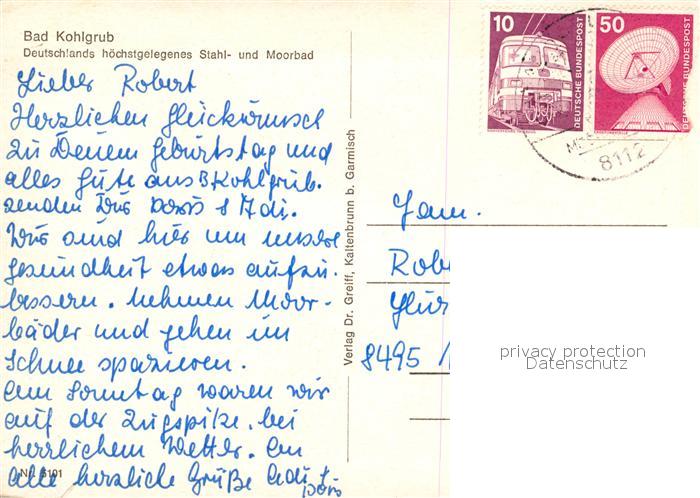 Bad Kohlgrub
Deutschlands höchstgelegenes Stahl- und Moorbad
Lieber Robert
Herzlichen Glückwunsch
zu Deinem Geburtstag und
alles Gute aus B Kohlgrub.
senden Dir Doris & Adi.
Wir sind hier um unsere
Gesundheit etwas aufzu-
bessern. Nehmen Moor-
bäder und gehen im
Schnee spazieren.
Am Sonntag waren wir
auf der Zugspitze. bei
herrlichem Wetter. An
alle herzliche Grüße Adi +
Doris
Nr. 5101
Verlag Dr. Greiff, Kaltenbrunn b. Garmisch
10
DEUTSCHE BUNDESPOST
50
DEUTSCHE BUNDESPOST
8112
Fam.
Rob
8495
privacy protection
Datenschutz